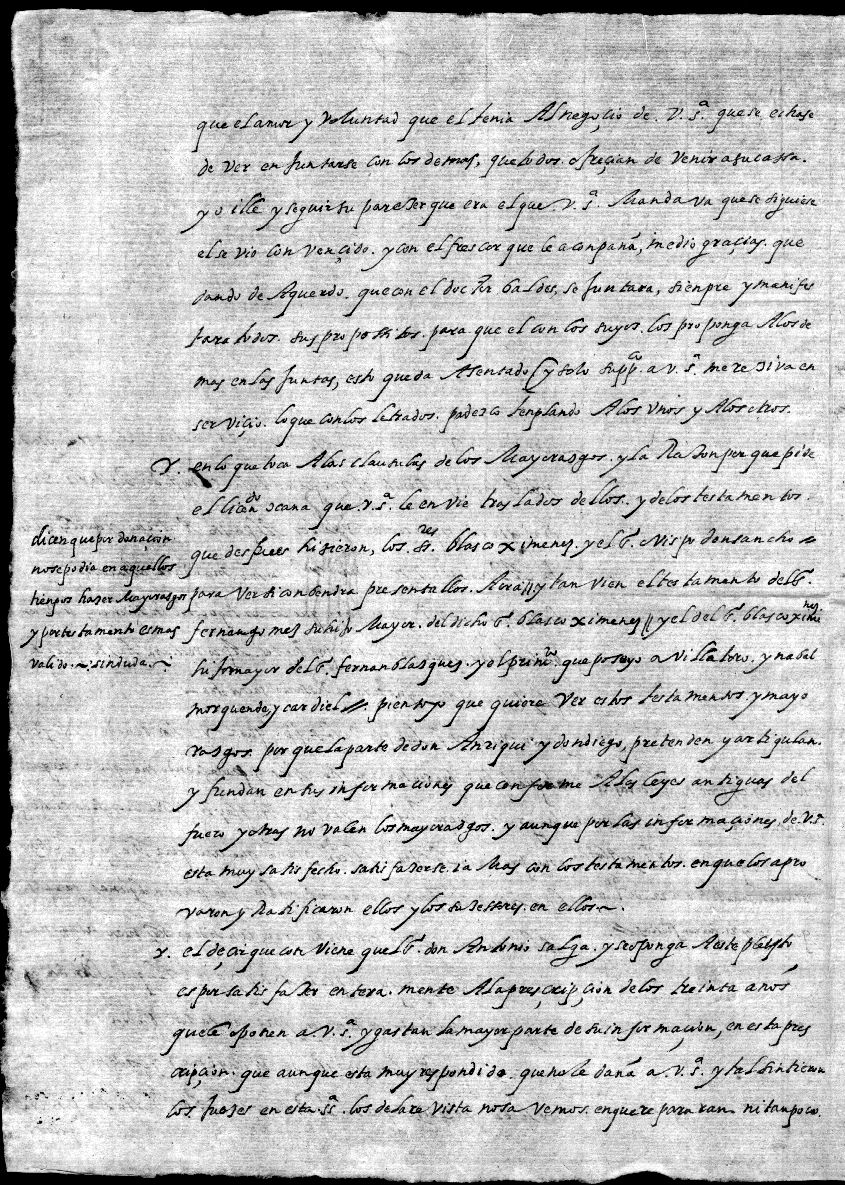 que el amor y voluntad que el tenia Al negoçio de .V.Sª. que se echase
de ver en Juntarse con los demas, que todos ofreçian de Venir a su cassa.
y o ille y seguir su pareçer que era el que .V.Sª. Manda va que se siguiese
el se vio con vençido. y con el frescor que le aconpaña, me dio graçias. que
dando de Aquerdo. que con el doctor baldes, se Juntara, sienpre y manifes
tara todos. sus propossitos. para que el con los suyos. los proponga A los de
mas en las Juntas, esto queda Asentado (y solo suppco. a V.Sª. me reçiva en
serviçio. lo que con los letrados. padezco tenplando A los Vnos y A los otros.
Y. en lo que toca A las clausulas de los Mayorasgos. y la Razon por que pide
el licendo ocana que .V.Sª. le envie traslados dellos. y de los testamentos.
que despues hizieron, los. Sres. blasco ximenez. y el S. Obispo don sancho
para Ver si conbendra presentallos. Aora // y tan vien el testamento del S.
fernan gomez su hijo Mayor. del dicho S. blasco ximenez // y el del S. blasco ximenez
hijo mayor del S. fernan blasquez. y el primo. que poseyo a Villatoro. y nabal
morquende, y cardiel //. pienso yo que quiere Ver estos testamentos y mayo
rasgos. por que la parte de don Anrique y don diego, pretenden y artiqulan.
y fundan en sus informaciones que conforme A las leyes antiguas del
fuero y otras no valen los mayoradgos. y aunque por las informaçiones. de .V.S.
esta muy satisfecho. satisfazerse ia Mas con los testamentos. en que los apro
varon y Ratificaron ellos y los suzessores. en ellos~.
Y. el deçir que con Viene que el S. don Antonio salga. y se oponga A este pleyto
es por satisfazer entera. mente A la presçripçion de los treinta años
que le oponen a .V.Sª. y gastan la mayor parte de su informaçion, en esta pres
cripçion. que aunque esta muy respondido. que no le daña a .V.Sª. y tal sintieron
los. Juezes en esta .Sª. los de la re vista no sa vemos. en que re pararan ni tanpoco.
dicen que por donaçion
no se podia en aquellos
tienpos hazer Mayorasgos
y por testamento es mas
valido.~. sin duda.~